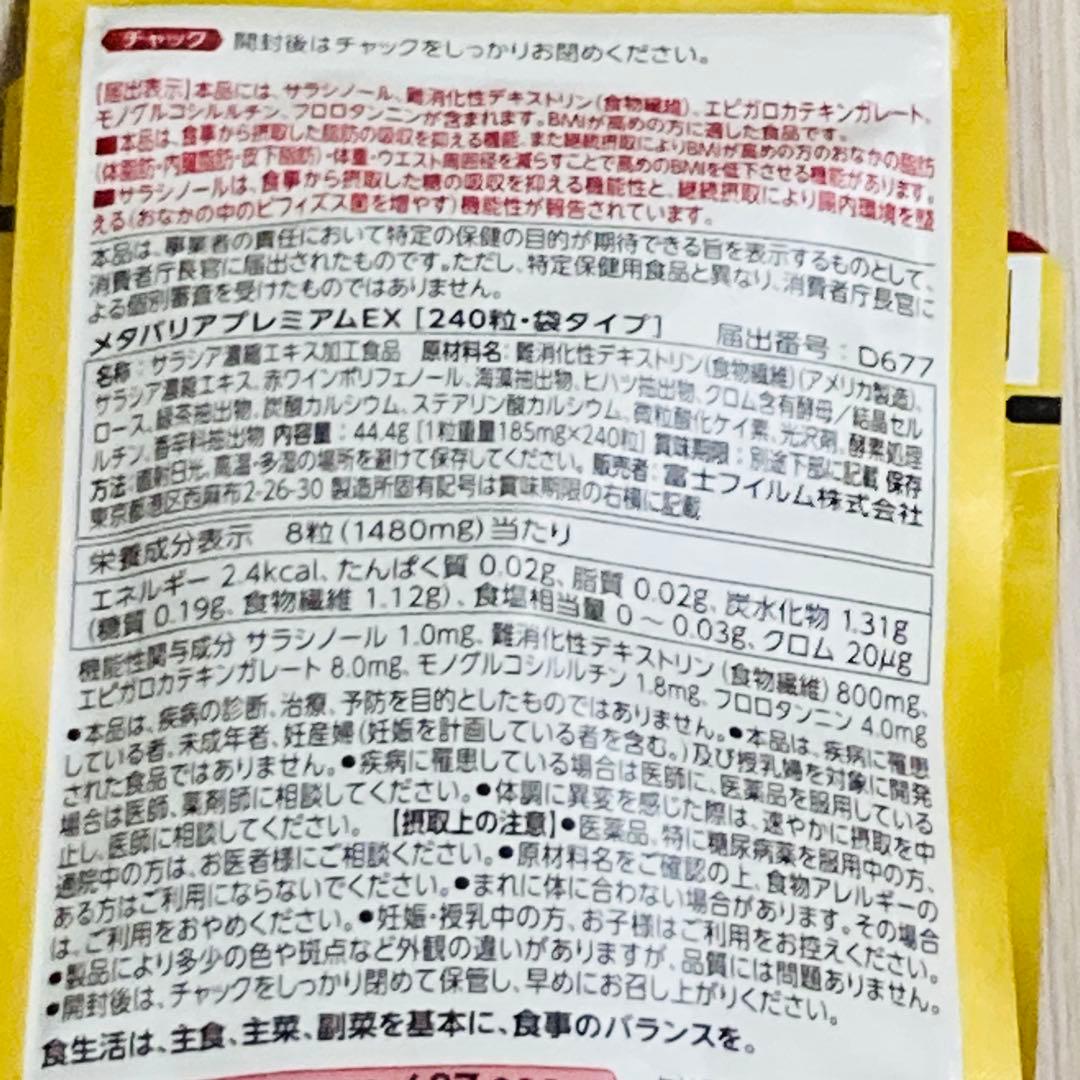 チャック 開封後はチャックをしっかりお閉めください。
【届出表示】本品には、サラシノール、難消化性デキストリン(食物繊維)、エピガロカテキンガレート、
モノグルコシルルチン、フロロタンニンが含まれます。BMIが高めの方に適した食品です。
■本品は、食事から摂取した脂肪の吸収を抑える機能、また継続摂取によりBMIが高めの方のおなかの脂肪
(体脂肪・内臓脂肪・皮下脂肪)・体重・ウエスト周囲径を減らすことで高めのBMIを低下させる機能があります。
■サラシノールは、食事から摂取した糖の吸収を抑える機能性と、継続摂取により腸内環境を整
える(おなかの中のビフィズス菌を増やす)機能性が報告されています。
本品は、事業者の責任において特定の保健の目的が期待できる旨を表示するものとして、
消費者庁長官に届出されたものです。ただし、特定保健用食品と異なり、消費者庁長官に
よる個別審査を受けたものではありません。
メタバリアプレミアムEX [240粒・袋タイプ] 届出番号:D677
名称:サラシア濃縮エキス加工食品 原材料名:難消化性デキストリン(食物繊維)(アメリカ製造)、
サラシア濃縮エキス、赤ワインポリフェノール、海藻抽出物、ヒハツ抽出物、クロム含有酵母/結晶セル
ロース、緑茶抽出物、炭酸カルシウム、ステアリン酸カルシウム、微粒酸化ケイ素、光沢剤、酵素処理
ルチン、香辛料抽出物 内容量:44.4g [1粒重量185mg×240粒] 賞味期限:別途下部に記載 保存
方法:直射日光、高温・多湿の場所を避けて保存してください。 販売者:富士フイルム株式会社
東京都港区西麻布2-26-30 製造所固有記号は賞味期限の右横に記載
栄養成分表示 8粒(1480mg)当たり
エネルギー 2.4kcal、たんぱく質 0.02g、脂質 0.02g、炭水化物 1.31g
(糖質 0.19g、食物繊維 1.12g)、食塩相当量 0〜0.03g、クロム 20μg
機能性関与成分 サラシノール 1.0mg、難消化性デキストリン(食物繊維) 800mg、
エピガロカテキンガレート 8.0mg、モノグルコシルルチン 1.8mg、フロロタンニン 4.0mg
●本品は、疾病の診断、治療、予防を目的としたものではありません。●本品は、疾病に罹患
している者、未成年者、妊産婦(妊娠を計画している者を含む。)及び授乳婦を対象に開発
された食品ではありません。●疾病に罹患している場合は医師に、医薬品を服用している
場合は医師、薬剤師に相談してください。●体調に異変を感じた際は、速やかに摂取を中
止し、医師に相談してください。 【摂取上の注意】●医薬品、特に糖尿病薬を服用中の方、
通院中の方は、お医者様にご相談ください。●原材料名をご確認の上、食物アレルギーの
ある方はご利用にならないでください。●まれに体に合わない場合があります。その場合
は、ご利用をおやめください。●妊娠・授乳中の方、お子様はご利用をお控えください。
●製品により多少の色や斑点など外観の違いがありますが、品質には問題ありません。
●開封後は、チャックをしっかり閉めて保管し、早めにお召し上がりください。
食生活は、主食、主菜、副菜を基本に、食事のバランスを。